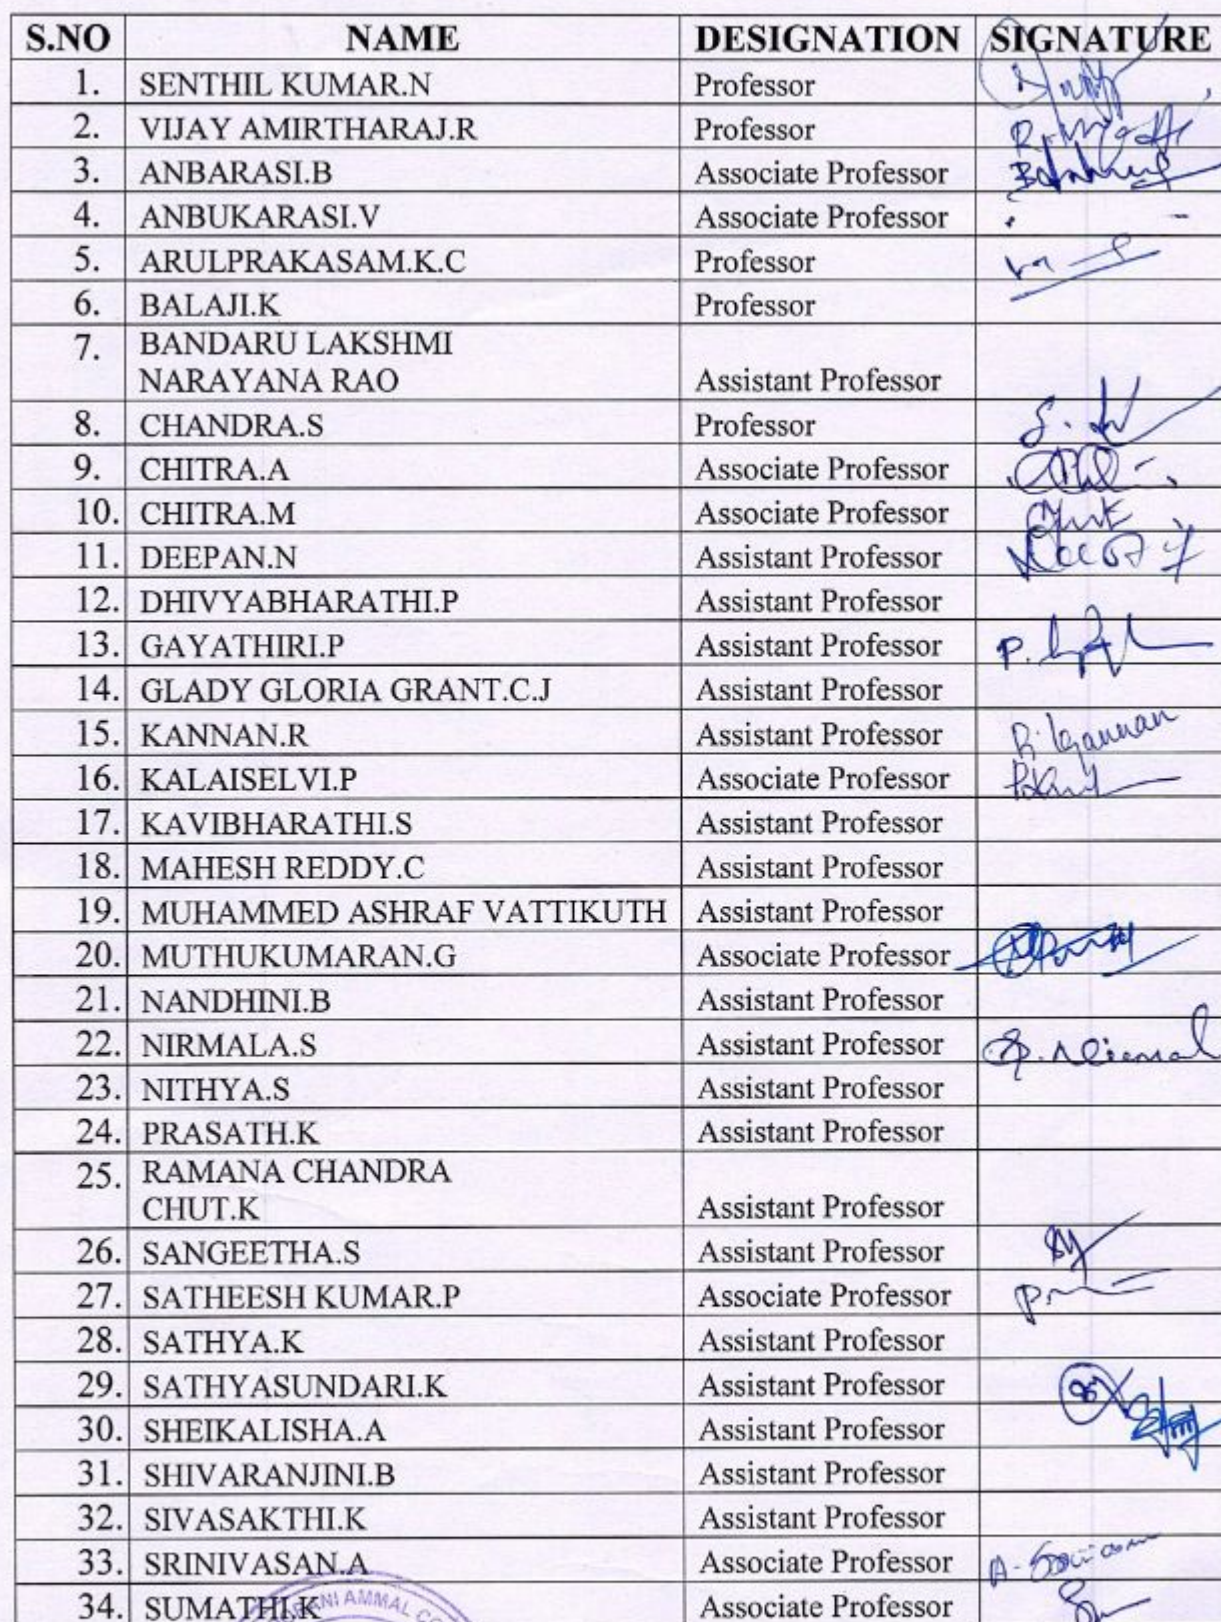 S.NO NAME DESIGNATION SIGNATURE
1. SENTHIL KUMAR.N Professor
2. VIJAY AMIRTHARAJ.R Professor
3. ANBARASI.B Associate Professor
4. ANBUKARASI.V Associate Professor
5. ARULPRAKASAM.K.C Professor
6. BALAJI.K Professor
7. BANDARU LAKSHMI
NARAYANA RAO Assistant Professor
8. CHANDRA.S Professor
9. CHITRA.A Associate Professor
10. CHITRA.M Associate Professor
11. DEEPAN.N Assistant Professor
12. DHIVYABHARATHI.P Assistant Professor
13. GAYATHIRI.P Assistant Professor
14. GLADY GLORIA GRANT.C.J Assistant Professor
15. KANNAN.R Assistant Professor R. Kannan
16. KALAISELVI.P Associate Professor
17. KAVIBHARATHI.S Assistant Professor
18. MAHESH REDDY.C Assistant Professor
19. MUHAMMED ASHRAF VATTIKUTH Assistant Professor
20. MUTHUKUMARAN.G Associate Professor
21. NANDHINI.B Assistant Professor
22. NIRMALA.S Assistant Professor
23. NITHYA.S Assistant Professor
24. PRASATH.K Assistant Professor
25. RAMANA CHANDRA
CHUT.K Assistant Professor
26. SANGEETHA.S Assistant Professor
27. SATHEESH KUMAR.P Associate Professor
28. SATHYA.K Assistant Professor
29. SATHYASUNDARI.K Assistant Professor
30. SHEIKALISHA.A Assistant Professor
31. SHIVARANJINI.B Assistant Professor
32. SIVASAKTHI.K Assistant Professor
33. SRINIVASAN.A Associate Professor
34. SUMATHI.K Associate Professor
AMMAL